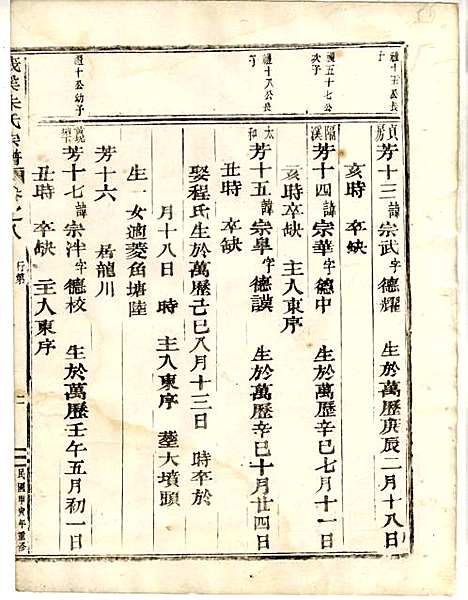 禮十五公長子
貞房 芳十三 諱宗武字德耀 生於萬曆庚辰二月十八日
亥時 卒缺
禮五十七公次子
隔溪 芳十四 諱宗華字德中 生於萬曆辛巳七月十一日
亥時 卒缺 主入東序
禮十八公長子
太和 芳十五 諱宗皐字德謨 生於萬曆辛巳十月廿四日
丑時 卒缺
娶程氏生於萬曆己巳八月十三日 時卒於
月十八日 時 主入東序 塟大墳頭
生一女適菱角塘陸
芳十六 居龍川
禮十公幼子
芳十七 諱宗泮字德校 生於萬曆壬午五月初一日
丑時 卒缺 主入東序
朱氏宗譜 卷之八 行第 二 民國甲寅年重修